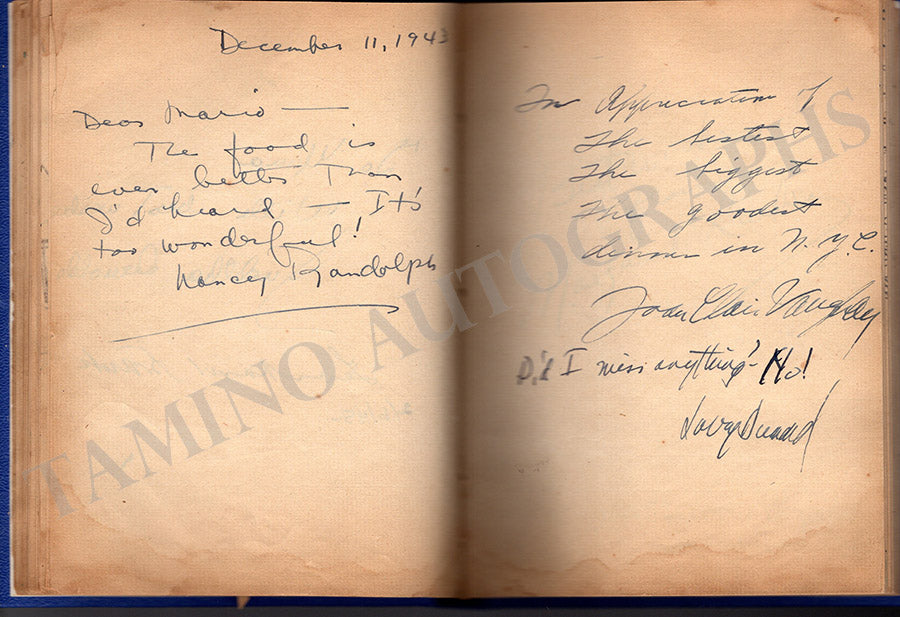 December 11, 1943
Dear Mario —
The food is
even better than
I'd heard — It's
too wonderful!
Nancy Randolph
In Appreciation of
The bestest
The biggest
The goodest
dinner in N.Y.C.
Did I miss anything? No!
TAMINO AUTOGRAPHS